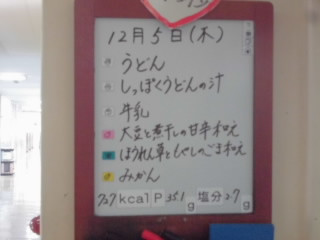 12月5日(木)
うどん
しっぽくうどんの汁
牛乳
大豆と煮干しの甘辛和え
ほうれん草ともやしのごま和え
みかん
727kcal P 35.1g 塩分2.7g